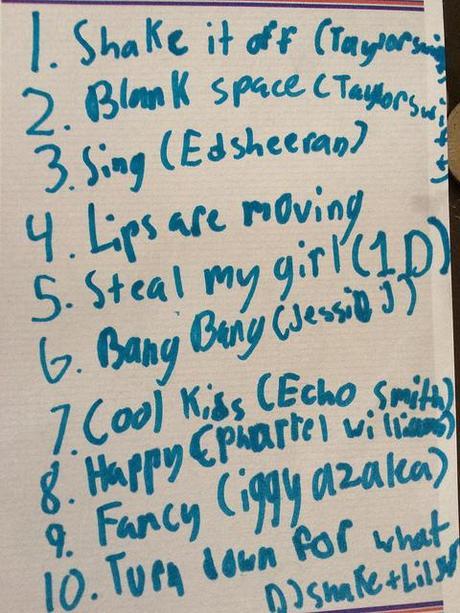 1. Shake it off (Taylor swift)
2. Blank space (Taylor swift)
3. Sing (Ed sheeran)
4. Lips are moving
5. Steal my girl (1D)
6. Bang Bang (Jessie J)
7. Cool Kiss (Echo Smith)
8. Happy (Pharrel williams)
9. Fancy (iggy azaka)
10. Turn down for what
DJ snake + Lil Jon